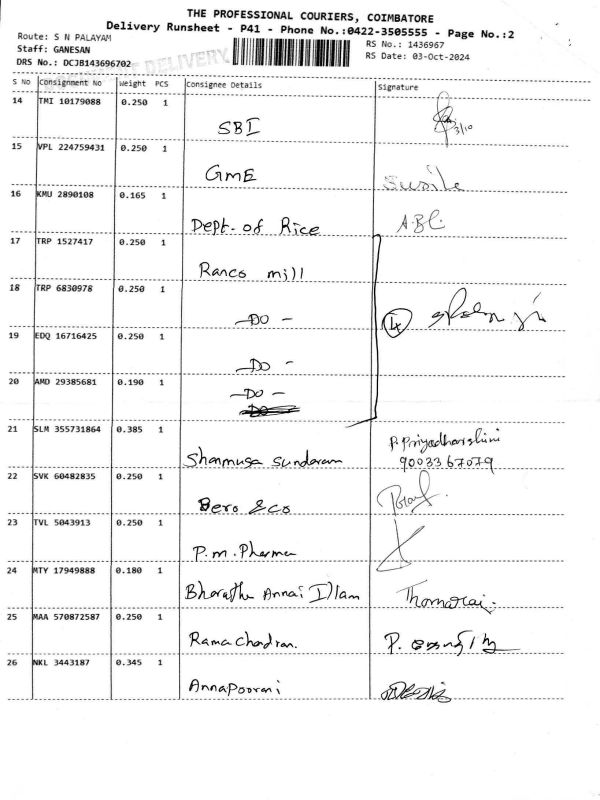 THE PROFESSIONAL COURIERS, COIMBATORE
Delivery Runsheet - P41 - Phone No.:0422-3505555 - Page No.:2
Route: S N PALAYAM
RS No.: 1436967
Staff: GANESAN
RS Date: 03-Oct-2024
DRS No.: DCJB143696702
DELIVERY
S No Consignment No Weight PCS Consignee Details Signature
14 TMI 10179088 0.250 1
SBI 3/10
15 VPL 224759431 0.250 1
GME
16 KMU 2890108 0.165 1
Dept. of Rice
17 TRP 1527417 0.250 1
Ranco mill
18 TRP 6830978 0.250 1
-DO - 4
19 EDQ 16716425 0.250 1
-DO -
20 AMD 29385681 0.190 1
-DO -
21 SLM 355731864 0.385 1
Shanmuga Sundaram P. Priyadharshini
9003367079
22 SVK 60482835 0.250 1
Bero & co
23 TVL 5043913 0.250 1
P.m. Pharma
24 MTY 17949888 0.180 1
Bharathi Annai Illam
25 MAA 570872587 0.250 1
Rama chandran. P.
26 NKL 3443187 0.345 1
Annapoorani